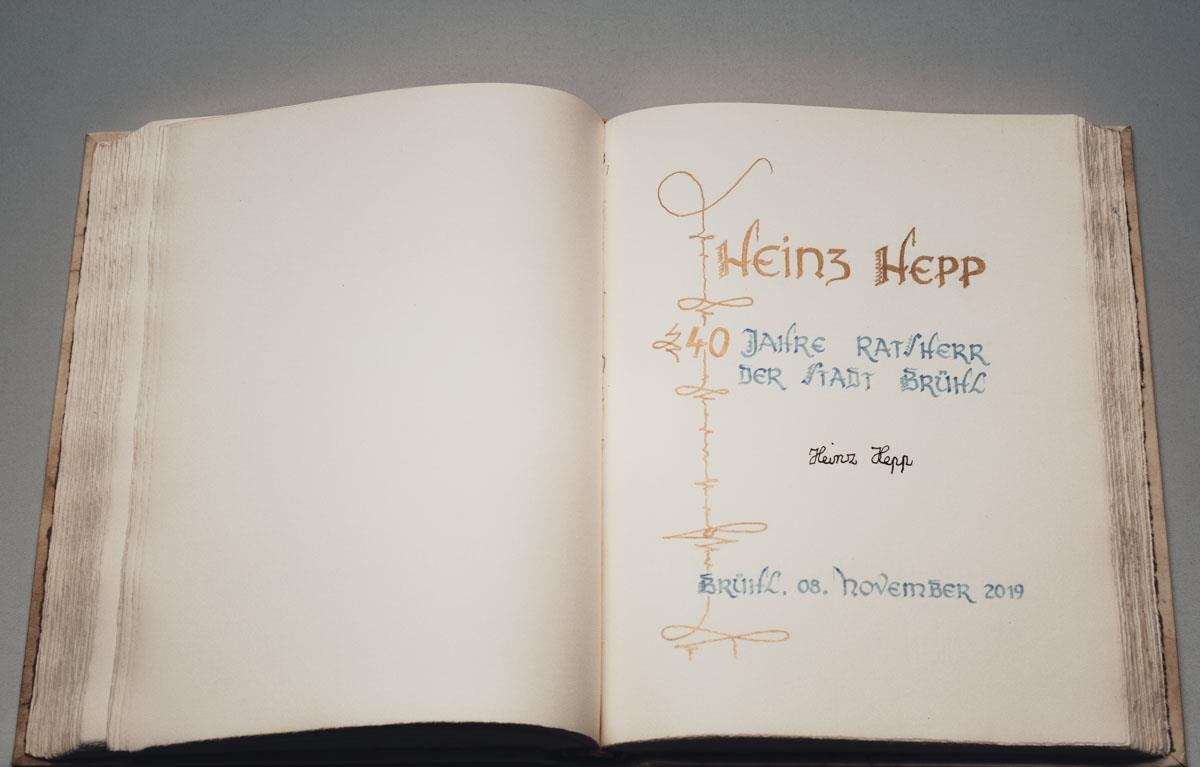 Heinz Hepp
40 Jahre Ratsherr
der Stadt Brühl
Heinz Hepp
Brühl, 08. November 2019